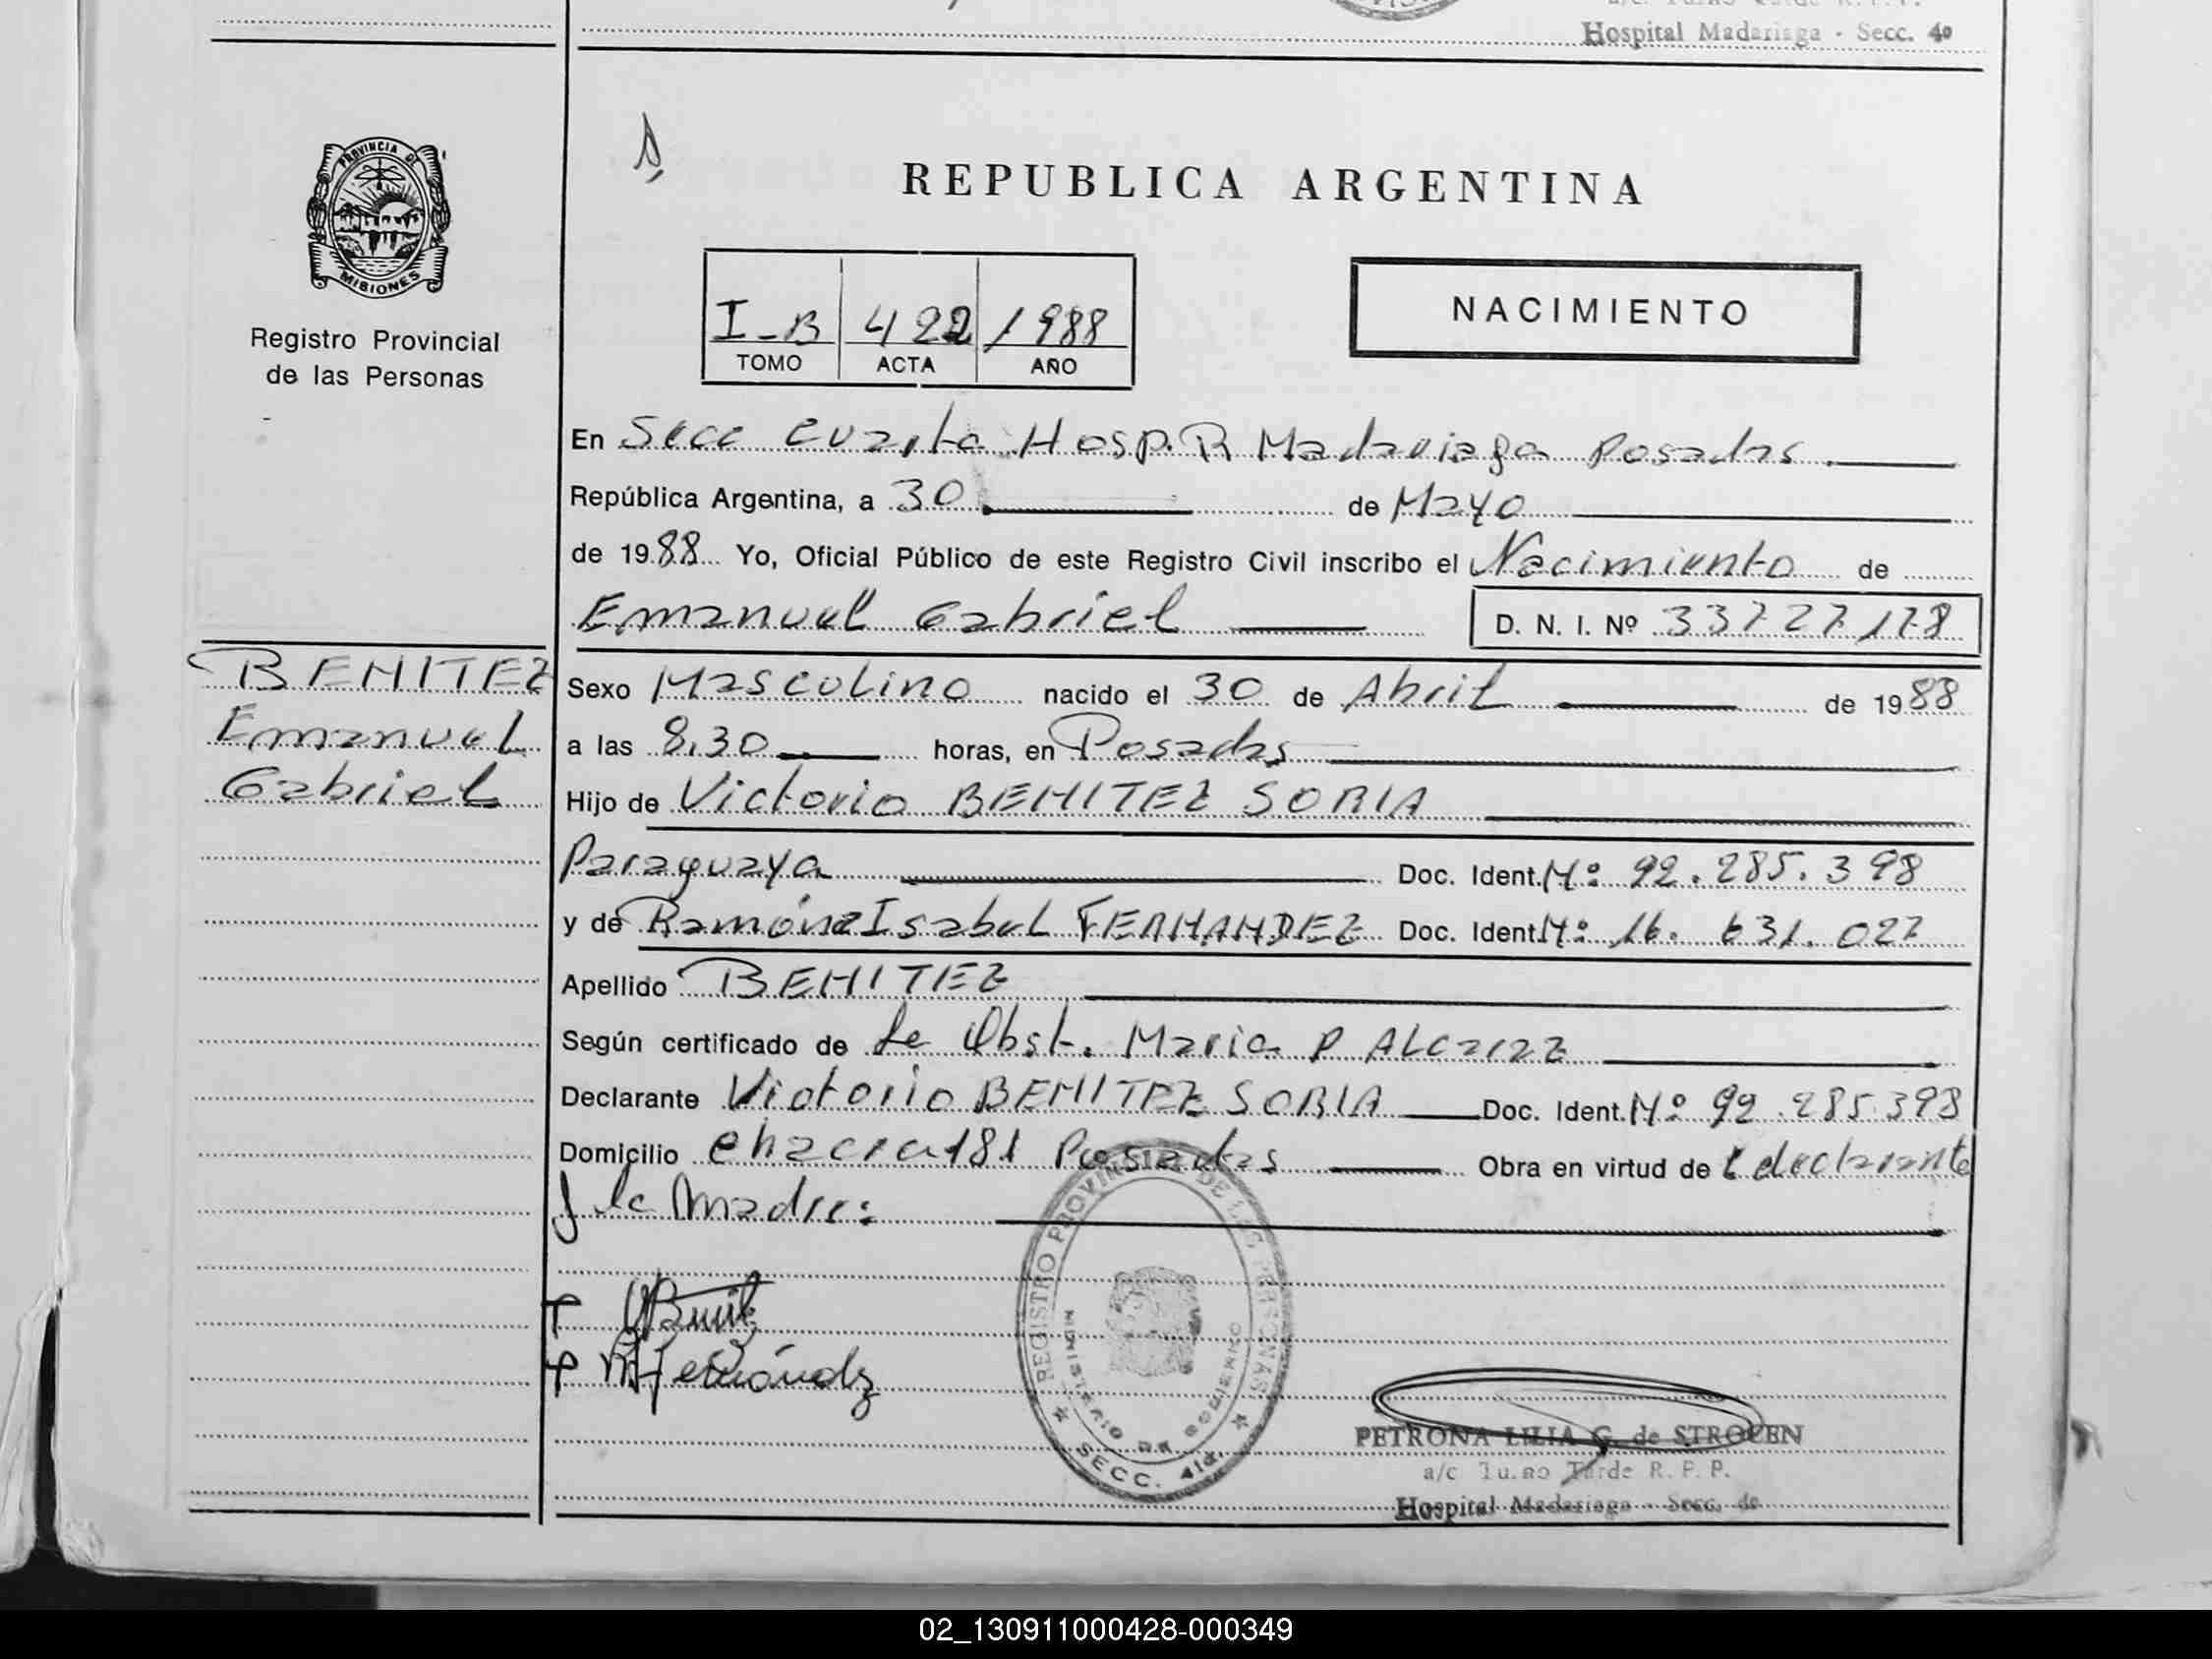 Hospital Madariaga - Secc. 4º
PROVINCIA DE
MISIONES
Registro Provincial
de las Personas
REPUBLICA ARGENTINA
I-B 422 1988
TOMO ACTA AÑO
NACIMIENTO
En Secc Cuarta Hosp. R Madariaga Posadas.
República Argentina, a 30 de Mayo
de 1988 Yo, Oficial Público de este Registro Civil inscribo el Nacimiento de
Emanuel Gabriel D. N. I. Nº 33727178
BENITEZ
Emanuel
Gabriel
Sexo Masculino nacido el 30 de Abril de 1988
a las 8,30 horas, en Posadas
Hijo de Victorio BENITEZ SORIA
Paraguaya Doc. Ident. Nº 92.285.398
y de Ramona Isabel FERNANDEZ Doc. Ident. Nº 16. 631. 027
Apellido BENITEZ
Según certificado de la Obst. Maria P Alcaraz
Declarante Victorio BENITEZ SORIA Doc. Ident. Nº 92.285.398
Domicilio chacra 181 Posadas Obra en virtud de l declarante
y la Madre:
REGISTRO PROVINCIAL DE LAS PERSONAS
MINISTERIO DE GOBIERNO
SECC. 4ta.
PETRONA LILIA G. de STROCEN
a/c Turno Tarde R. P. P.
Hospital Madariaga - Secc. 4º
02_130911000428-000349